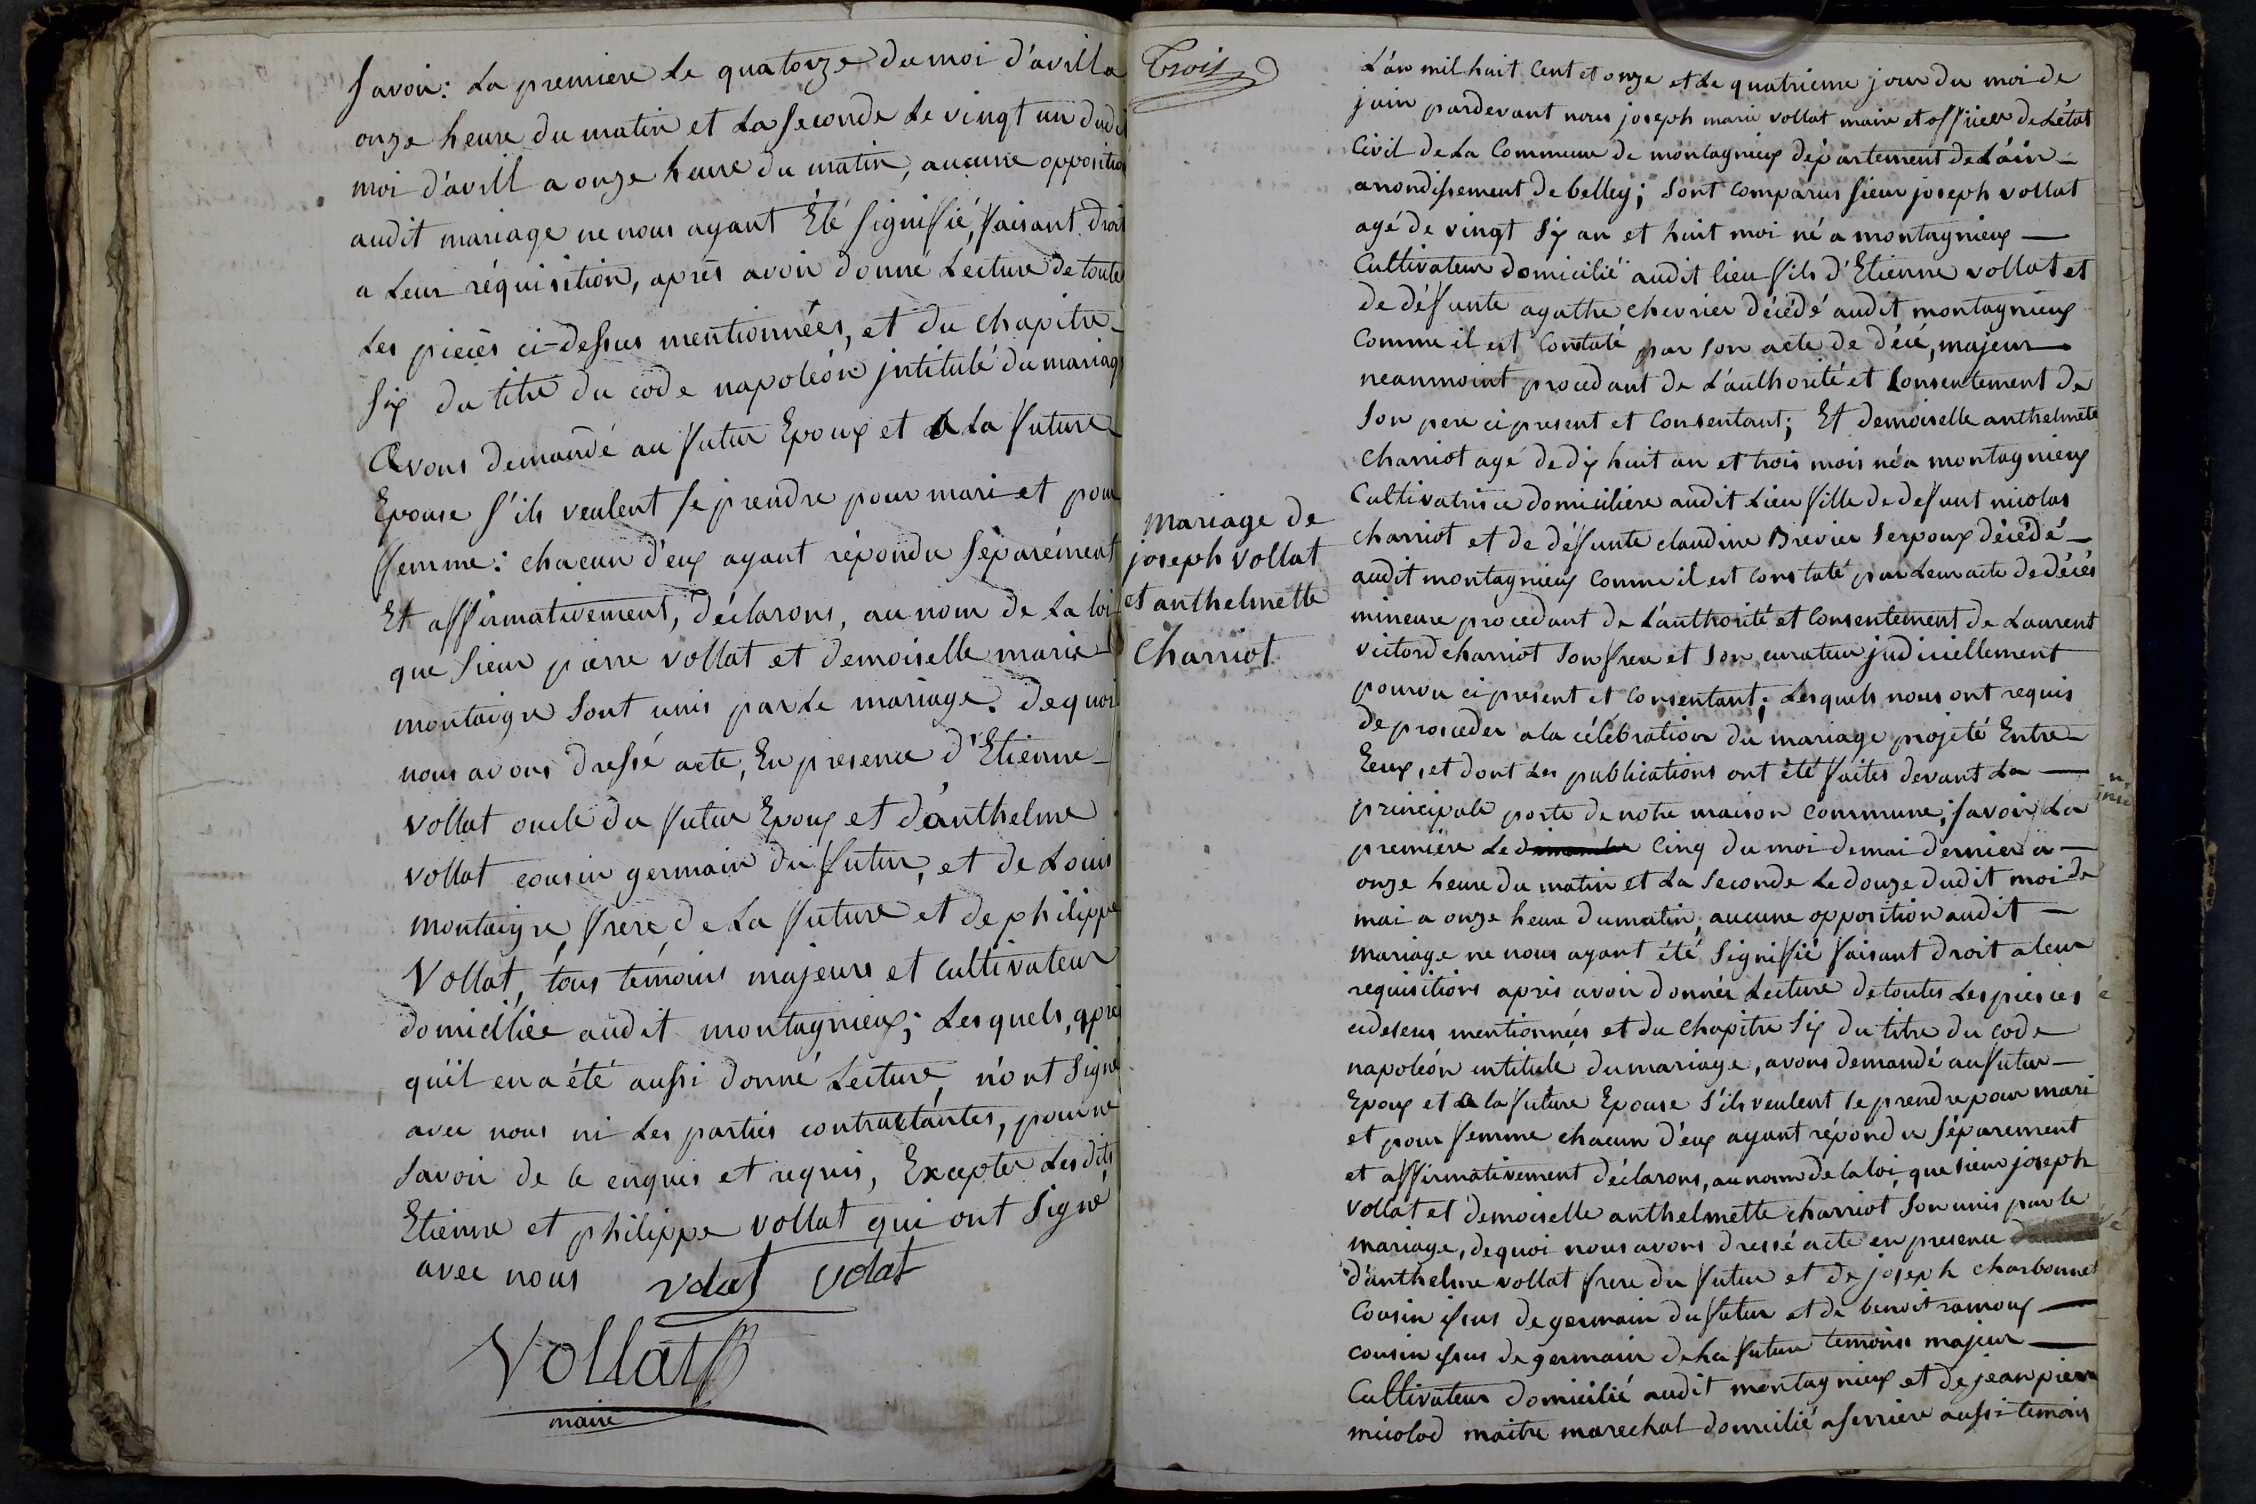 Savoir: La premiere Le quatorze du moi d'avill a
onze heure du matin et La seconde Le vingt un dudit
moi d'avill a onze heure du matin, aucune opposition
audit mariage ne nous ayant Été signifié, faisant droit
a Leur réquisition, aprés avoir donné Lecture de toute
Les pieces ci-dessus mentionnées, et du chapitre
Six du titre du code napoléon jntitulé du mariage
Avons demandé au futur Epoux et a La future
Epouse s'ils veulent se prendre pour mari et pour
femme: chacun d'eux ayant répondu séparément
Et affirmativement, déclarons, au nom de La loi
que sieur pierre vollat et demoiselle marie
montaigre sont unis par Le mariage. de quoi
nous avons dressé acte, En presence d'Etienne
vollat oncle du futur Epoux et d'anthelme
vollat cousin germain du futur, et de Louis
montaigre, frere de La future et de philippe
Vollat, tous témoins majeurs et cultivateur
domicilliée audit montagnieux; Lesquels, aprés
qu'il en a été aussi donné Lecture, n'ont signé
avec nous ni Les parties contractantes, pour ne
savoir de ce enquis et requis, Excepter Lesdits
Etienne et philippe vollat qui ont signé
avec nous volat volat
Vollat
maire
Trois
mariage de
joseph vollat
et anthelmette
Charriot
L'an mil huit Cent et onze et Le quatrieme jour du moi de
juin pardevant nous joseph marie vollat maire et officier de L'état
Civil de La Commune de montagnieux département de L'ain
arrondissement de belley; sont comparus sieur joseph vollat
agé de vingt six an et huit moi né a montagnieux
Cultivateur domicilié audit lieu fils d'Etienne vollat et
de défunte agathe chevrier décédé audit montagnieux
Comme il est constaté par son acte de décé, majeur
neanmoint procedant de L'authorité et Consentement de
Son pere ci present et Consentant; Et demoiselle anthelmete
Charriot agé de dix huit an et trois mois né a montagnieux
Cultivatrice domiciliere audit Lieu fille de defunt nicolas
charriot et de défunte claudine Brevier serpoux décédé
audit montagnieux comme il est constaté par Leur acte de décés
mineure procedant de L'authorité et Consentement de Laurent
victord charriot son frere et son curateur judiciellement
pourvu ci present et consentant; Lesquels nous ont requis
de proceder a la célébration du mariage projeté Entre
Eeux, et dont Les publications ont été faites devant La
principale porte de notre maison commune; savoir La
premiere Le cinq du moi de mai dernier a
onze heure du matin et La seconde Le douze dudit moi de
mai a onze heure du matin, aucune opposition audit
mariage ne nous ayant été signifié faisant droit a leur
requisitions aprés avoir donnée Lecture de toutes Les pieces
cidesus mentionnées et du chapitre Six du titre du code
napoléon intitulé du mariage, avons demandé au futur
Epoux et a la future Epouse s'ils veulent se prendre pour mari
et pour femme chacun d'eux ayant répondu séparement
et affirmativement déclarons, au nom de la loi, que sieur joseph
vollat et demoiselle anthelmette charriot son unis par le
mariage, de quoi nous avons dressé acte en presence
d'anthelme vollat frere du futur et de joseph charbonnet
cousin issus de germain du futur et de benoit ramoux
cousin issus de germain de La future temoins majeur
Cultivateur domicilié audit montagnieux et de jean pierre
micolod maitre marechal domicilié a serriere aussi temoins